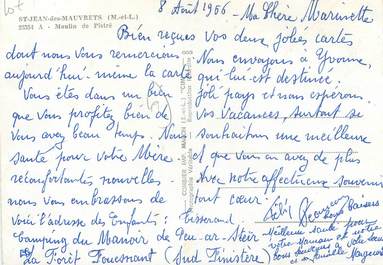 lot
ST-JEAN-des-MAUVRETS (M.-et-L.)
22251 A - Moulin de Pistré
8 Août 1966 - Ma Chère Marinette
Bien reçues vos deux jolies cartes
dont nous vous remercions. Nous envoyons à Yvonne,
aujourd'hui même la carte qui lui est destinée.
Vous êtes dans un bien joli pays et nous espérons
que vous profitez bien de vos vacances, surtout si
vous avez beau temps. Nous souhaitons une meilleure
santé pour votre Mère et que vous en ayez de plus
réconfortantes nouvelles. Avec notre affectueux souvenir
nous vous embrassons de tout cœur.
Voici l'adresse des Enfants: Tisserand
Camping du Manoir de Pen-ar-Steir
La Forêt Fouesnant (Sud Finistère)
Bons Baisers
Meilleure santé pour
votre Maman et notre
bons baisers à vous deux
et famille